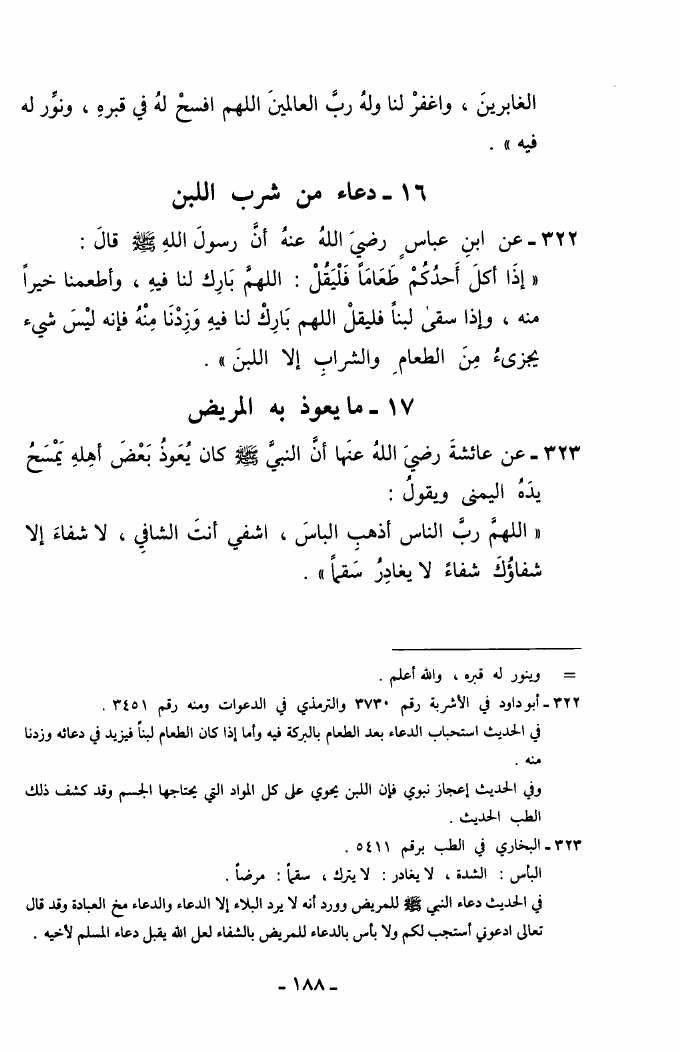 الغابرينَ ، واغفرْ لنا ولهُ ربَّ العالمينَ اللهم افسحْ لهُ في قبرهِ ، ونوِّر له
فيه » .
١٦ ـ دعاء من شرب اللبن
٣٢٢ ـ عن ابنِ عباسٍ رضيَ اللهُ عنهُ أنَّ رسولَ اللهِ ﷺ قالَ :
« إذَا أكلَ أَحدُكُمْ طَعَامَاً فَلْيَقُلْ : اللهمَّ بَارِك لنا فيهِ ، وأطعمنا خيراً
منه ، وإذا سقىٰ لبناً فليقلْ اللهم بَارِكْ لنا فيهِ وَزِدْنَا مِنْهُ فإنه ليْسَ شيء
يجزىءُ مِنَ الطعامِ والشرابِ إلا اللبنَ » .
١٧ ـ ما يعوذ به المريض
٣٢٣ ـ عن عائشةَ رضيَ اللهُ عنَها أنَّ النبيَّ ﷺ كان يُعَوذُ بَعْضَ أهِلهِ يَمْسَحُ
يدَهُ اليمنى ويقولُ :
« اللهمَّ ربَّ الناس أذهبِ الباسَ ، اشفي أنتَ الشافي ، لا شفاءَ إلا
شفاؤُكَ شفاءً لا يغادِرُ سَقماً » .
= وينور له قبره ، والله أعلم .
٣٢٢ ـ أبو داود في الأشربة رقم ٣٧٣٠ والترمذي في الدعوات ومنه رقم ٣٤٥١ .
في الحديث استحباب الدعاء بعد الطعام بالبركة فيه وأما إذا كان الطعام لبناً فيزيد في دعائه وزدنا
منه .
وفي الحديث إعجاز نبوي فإن اللبن يحوي على كل المواد التي يحتاجها الجسم وقد كشف ذلك
الطب الحديث .
٣٢٣ ـ البخاري في الطب برقم ٥٤١١ .
البأس : الشدة ، لا يغادر : لا يترك ، سقماً : مرضاً .
في الحديث دعاء النبي ﷺ للمريض وورد أنه لا يرد البلاء إلا الدعاء والدعاء مخ العبادة وقد قال
تعالى ادعوني أستجب لكم ولا بأس بالدعاء للمريض بالشفاء لعل الله يقبل دعاء المسلم لأخيه .
ـ ١٨٨ ـ